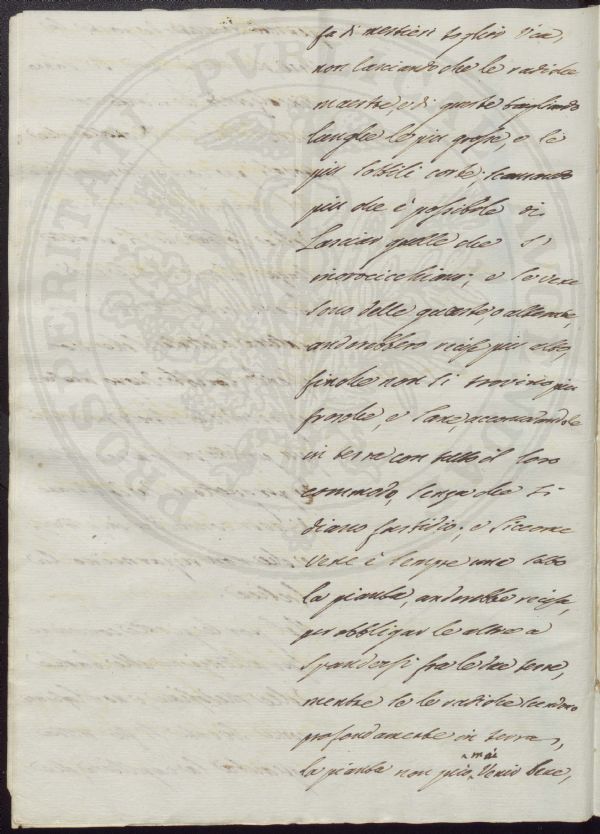 fa di mestieri toglier via,
non lasciando che le radiche
maestre, e di queste tagliando
lunghe le più grosse, e le
più sottili corte; scansando
più che è possibile di
lasciar quelle che s'
incrocicchiano; e se vene
sono delle guaste, o alterate,
anderebbero recise più alte,
finche non si trovino più
fresche, e sane, accomodandole
in terra con tutto il loro
commodo, senza che si
diano fastidio; e siccome
vene è sempre una sotto
la pianta, anderebbe recisa,
per obbligar le altre a
spandersi fra le due terre,
mentre se le radiche scendono
profondamente in terra,
la pianta non può mai venir bene,
PROSPERITATI PVBLICAE AVGENDAE